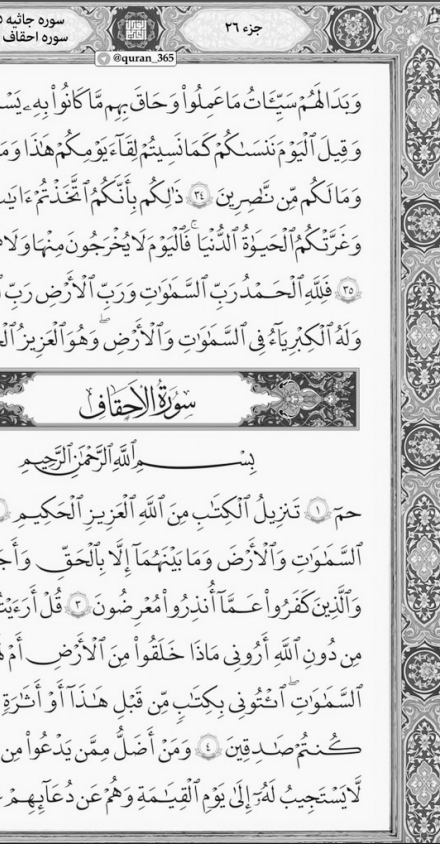 سوره جاثیه
جزء ۲۶
سوره احقاف
@quran_365
وَبَدَا لَهُمۡ سَيِّـَٔاتُ مَا عَمِلُواْ وَحَاقَ بِهِم مَّا كَانُواْ بِهِۦ
وَقِيلَ ٱلۡيَوۡمَ نَنسَىٰكُمۡ كَمَا نَسِيتُمۡ لِقَآءَ يَوۡمِكُمۡ هَٰذَا
وَمَا لَكُم مِّن نَّٰصِرِينَ ٣٤ ذَٰلِكُم بِأَنَّكُمُ ٱتَّخَذۡتُمۡ
وَغَرَّتۡكُمُ ٱلۡحَيَوٰةُ ٱلدُّنۡيَاۚ فَٱلۡيَوۡمَ لَا يُخۡرَجُونَ مِنۡهَا وَلَا
٣٥ فَلِلَّهِ ٱلۡحَمۡدُ رَبِّ ٱلسَّمَٰوَٰتِ وَرَبِّ ٱلۡأَرۡضِ رَبِّ
وَلَهُ ٱلۡكِبۡرِيَآءُ فِي ٱلسَّمَٰوَٰتِ وَٱلۡأَرۡضِۖ وَهُوَ ٱلۡعَزِيزُ
سُورَةُ الأَحْقَافِ
بِسۡمِ ٱللَّهِ ٱلرَّحۡمَٰنِ ٱلرَّحِيمِ
حمٓ ١ تَنزِيلُ ٱلۡكِتَٰبِ مِنَ ٱللَّهِ ٱلۡعَزِيزِ ٱلۡحَكِيمِ
ٱلسَّمَٰوَٰتِ وَٱلۡأَرۡضَ وَمَا بَيۡنَهُمَآ إِلَّا بِٱلۡحَقِّ
وَٱلَّذِينَ كَفَرُواْ عَمَّآ أُنذِرُواْ مُعۡرِضُونَ ٣ قُلۡ
مِن دُونِ ٱللَّهِ أَرُونِي مَاذَا خَلَقُواْ مِنَ ٱلۡأَرۡضِ أَمۡ
ٱلسَّمَٰوَٰتِۖ ٱئۡتُونِي بِكِتَٰبٖ مِّن قَبۡلِ هَٰذَآ أَوۡ أَثَٰرَةٖ
كُنتُمۡ صَٰدِقِينَ ٤ وَمَنۡ أَضَلُّ مِمَّن يَدۡعُواْ مِن
لَّا يَسۡتَجِيبُ لَهُۥٓ إِلَىٰ يَوۡمِ ٱلۡقِيَٰمَةِ وَهُمۡ عَن دُعَآئِهِمۡ